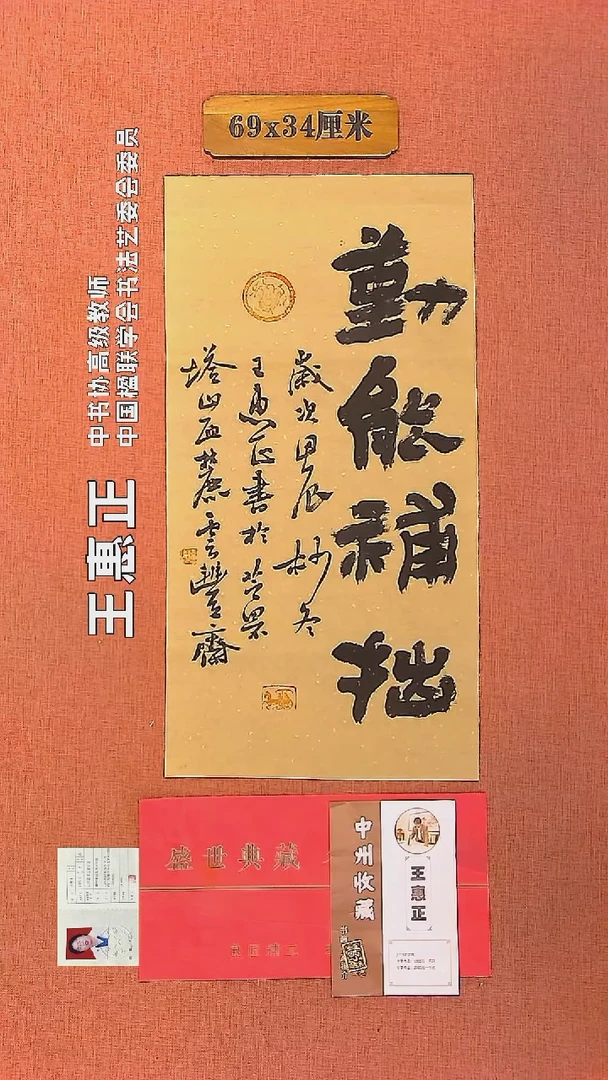 69x34厘米
中书协高级教师
中国楹联学会书法艺委会委员
王惠正
勤能補拙
歲次甲辰杪冬
王惠正書於芒果
塔山西麓雲豐齋
盛世典藏
中州收藏
王惠正